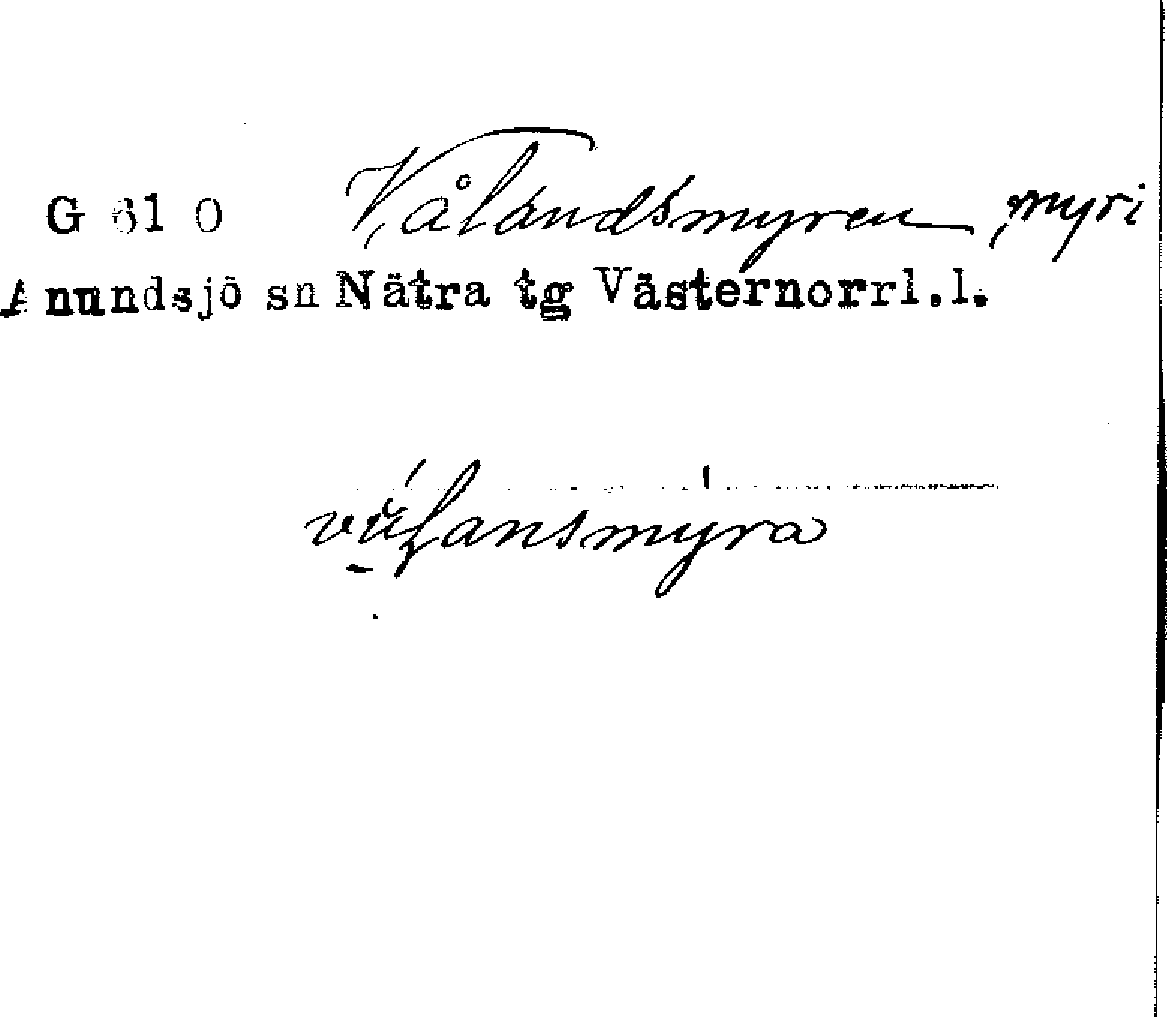 G 61 0 Vålandsmyren, myri
Anundsjö sn Nätra tg Västernorrl.l.